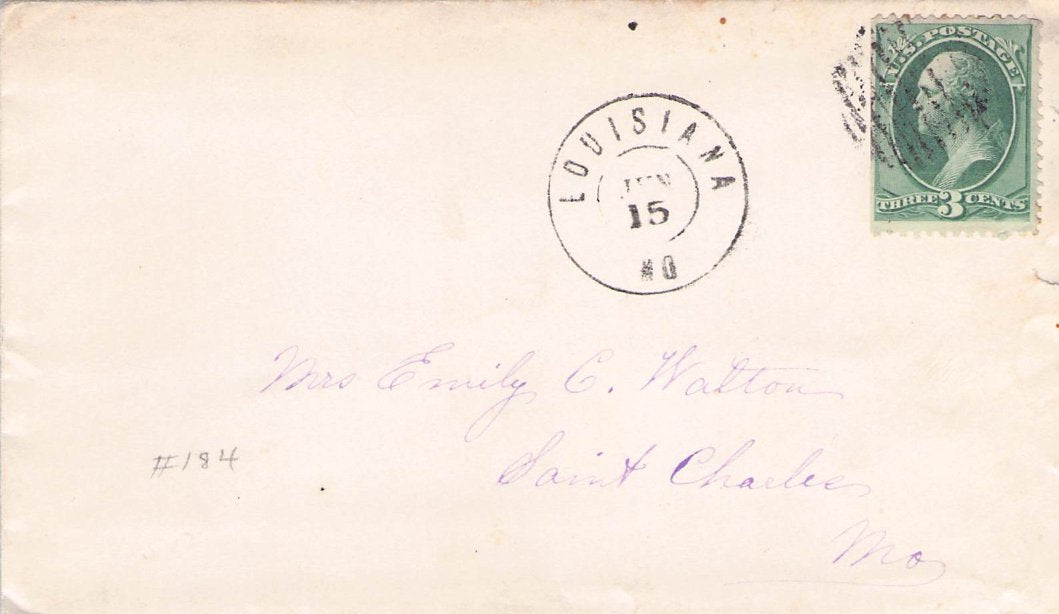 U.S. POSTAGE
THREE 3 CENTS
LOUISIANA
JUN
15
MO
Mrs Emily C. Walton
Saint Charles
Mo
#184